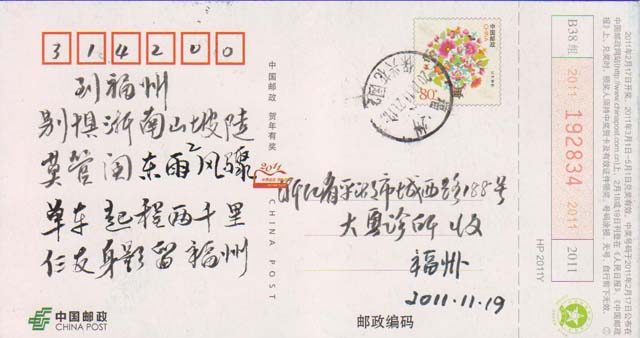 314200
到福州
别惧浙南山坡陡
莫管闽东雨风骤
单车起程两千里
仁友身影留福州
中国邮政 贺年有奖
2011
CHINA POST
中国邮政
CHINA
80分
浙江省平湖市城西路188号
大奥诊所 收
福州
2011.11.19
中国邮政
CHINA POST
邮政编码
HP 2011Y
B38组
2011
192834
2011
2011